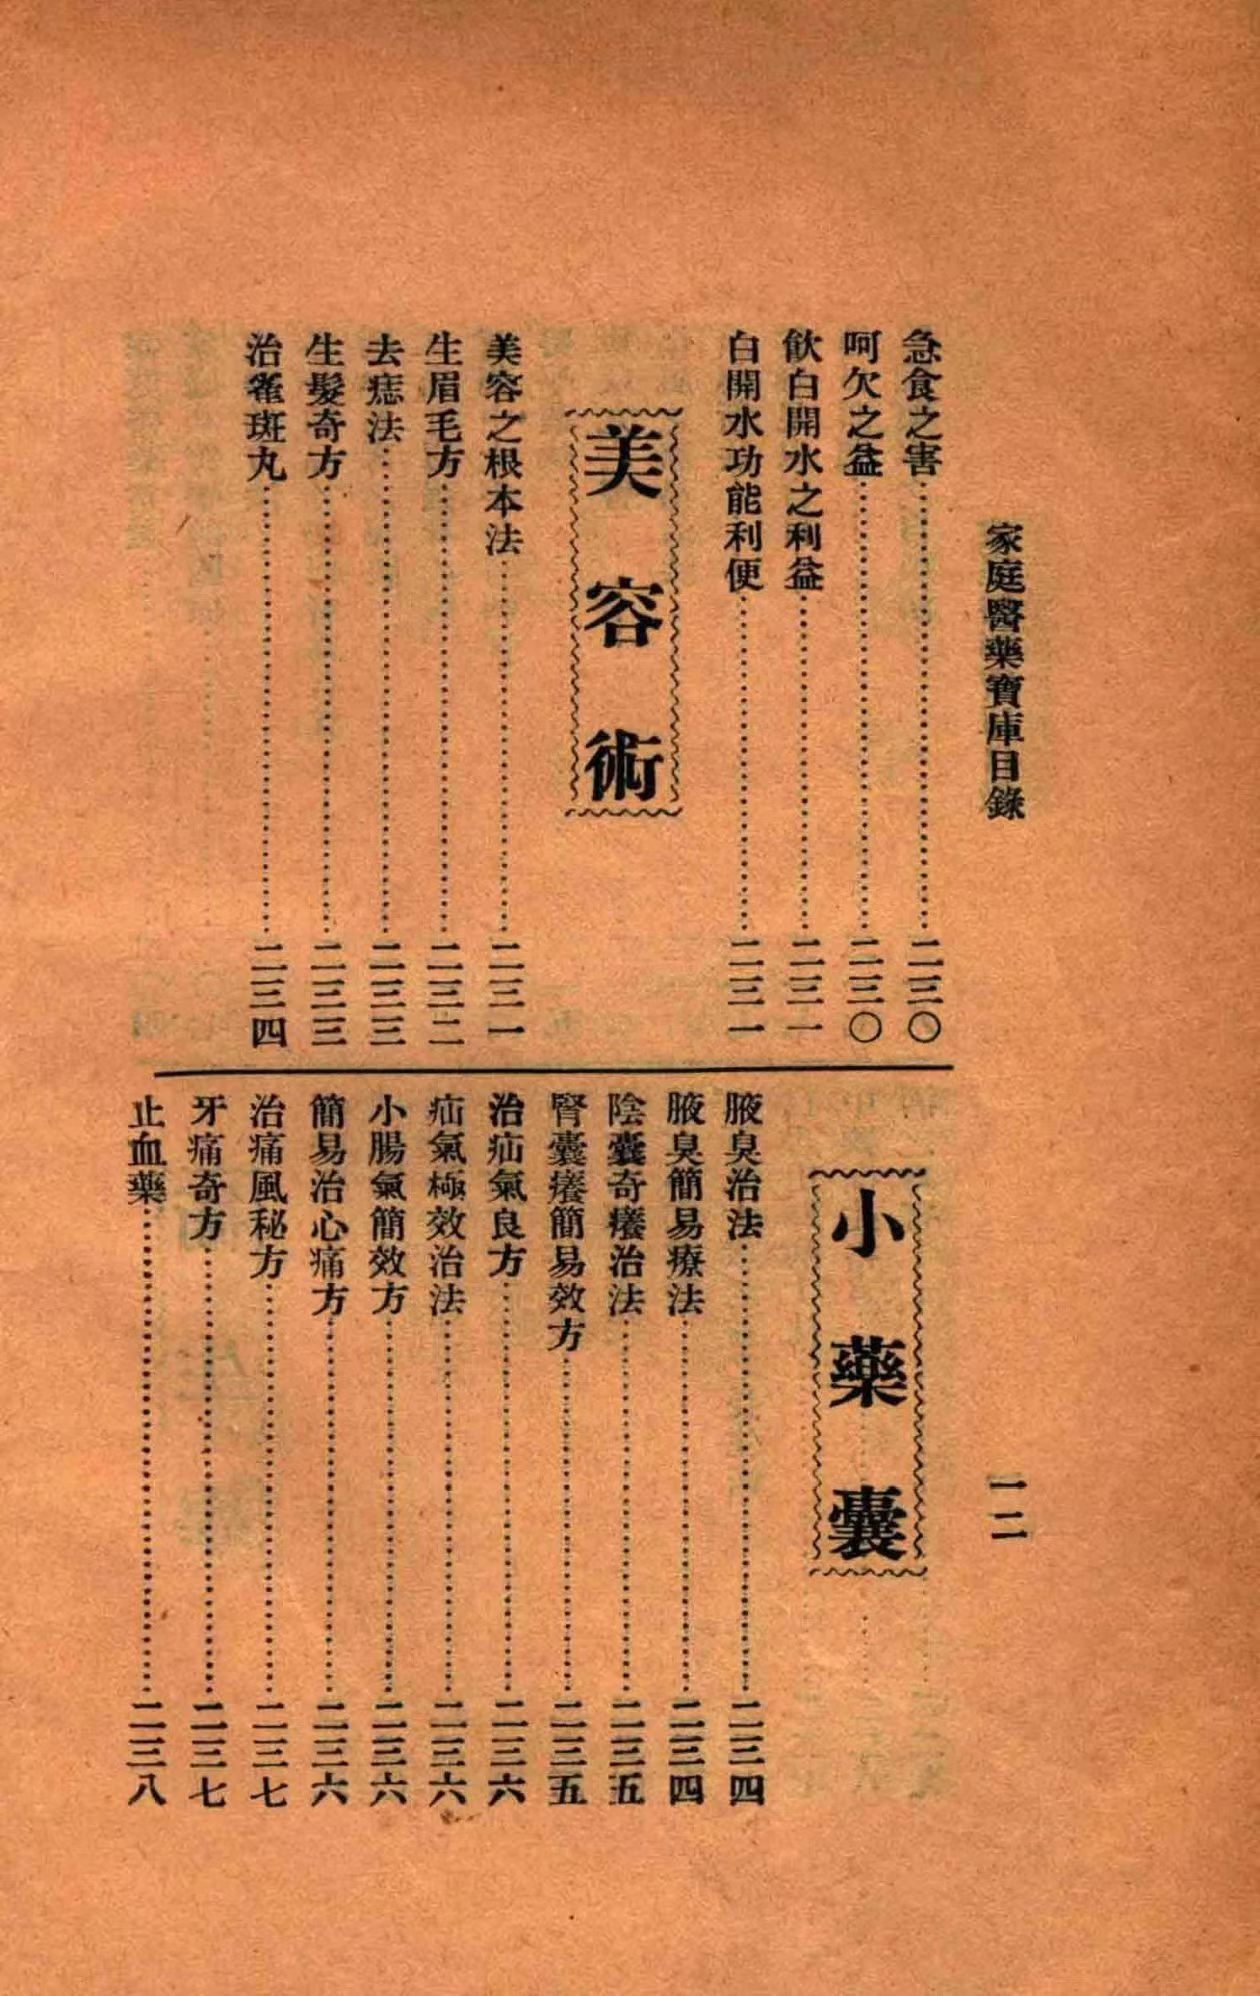 家庭醫藥寶庫目錄
一二
急食之害…………二三〇
呵欠之益…………二三〇
飲白開水之利益…………二三一
白開水功能利便…………二三一
美容術
美容之根本法…………二三一
生眉毛方…………二三二
去痣法…………二三三
生髮奇方…………二三三
治雀斑丸…………二三四
小藥囊
腋臭治法…………二三四
腋臭簡易療法…………二三四
陰囊奇癢治法…………二三五
腎囊癢簡易效方…………二三五
治疝氣良方…………二三六
疝氣極效治法…………二三六
小腸氣簡效方…………二三六
簡易治心痛方…………二三六
治痛風秘方…………二三七
牙痛奇方…………二三七
止血藥…………二三八